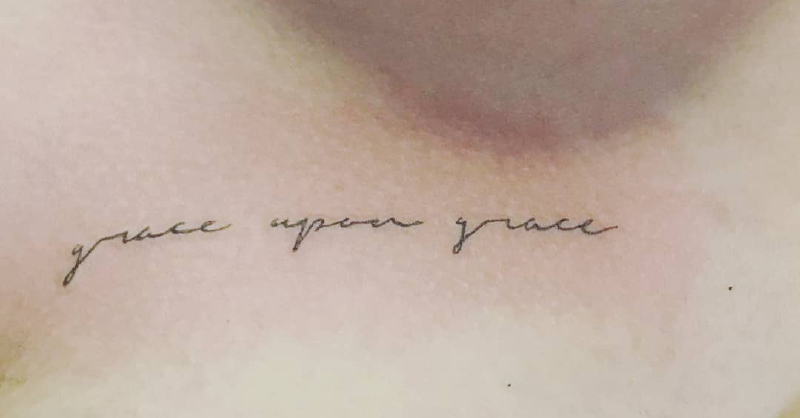 grace upon grace